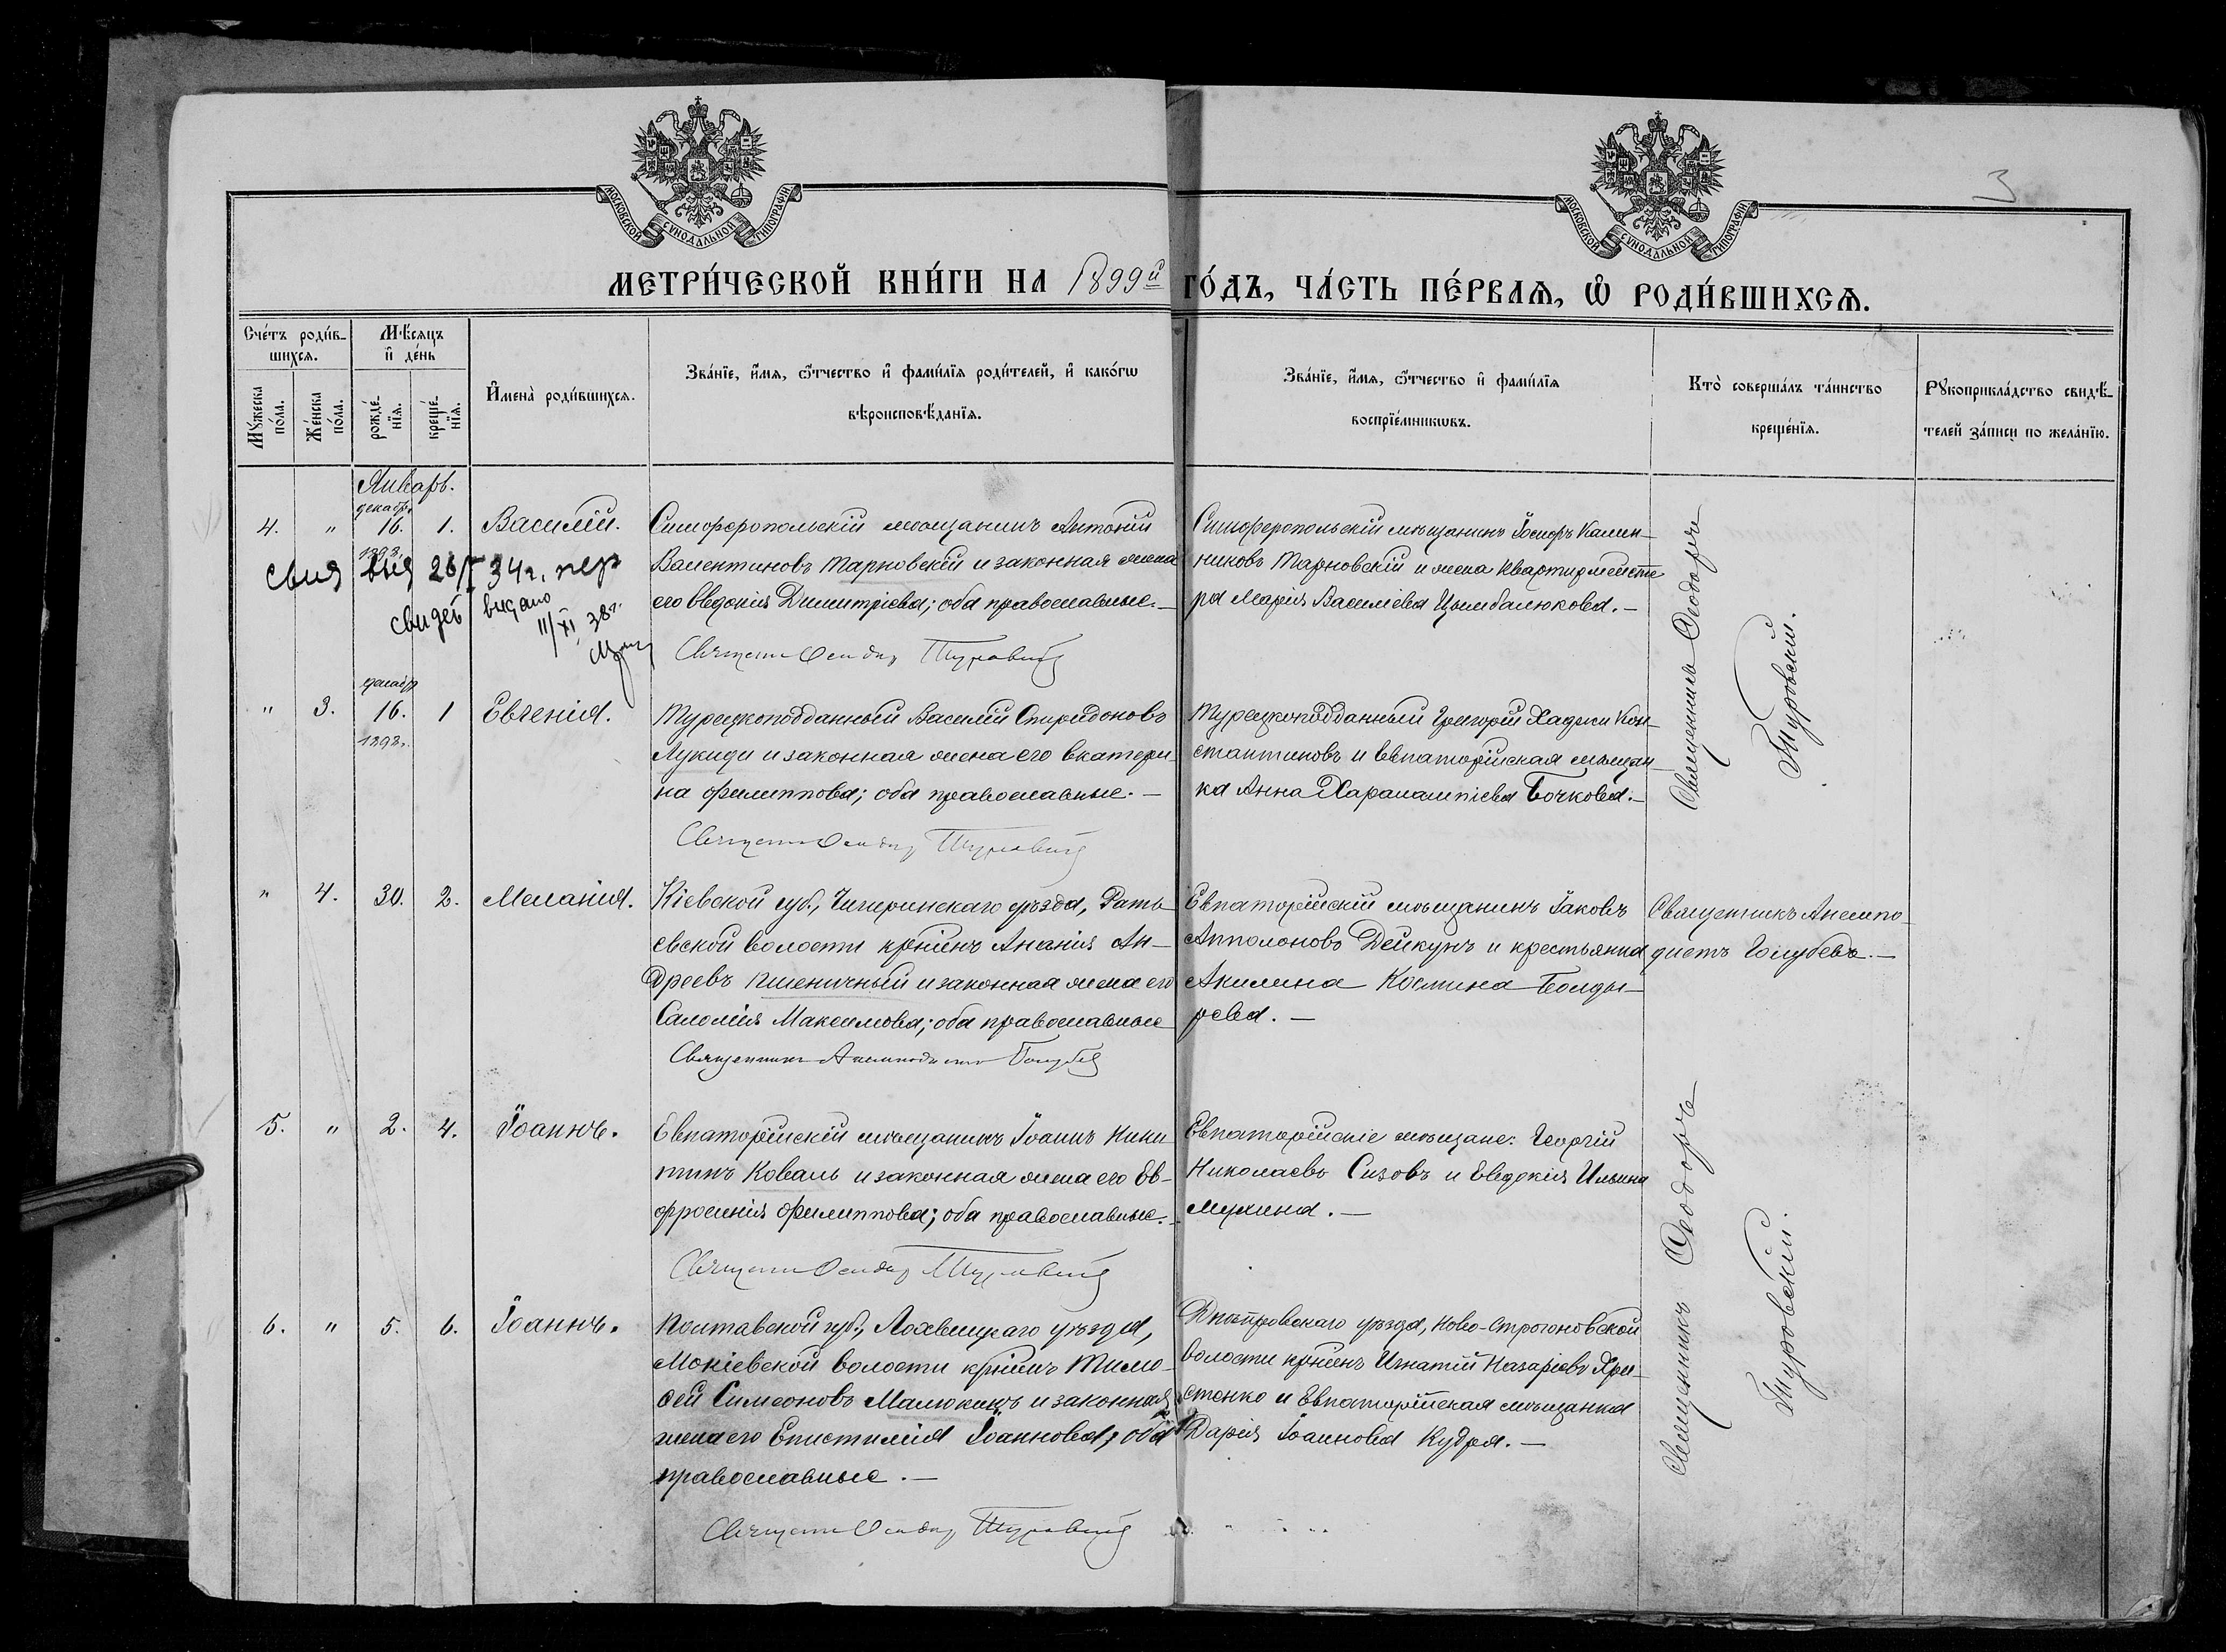 МОСКОВСКОЙ СѴНОДАЛЬНОЙ ТИПОГРАФІИ
МОСКОВСКОЙ СѴНОДАЛЬНОЙ ТИПОГРАФІИ
3
МЕТРИ́ЧЕСКОЙ КНИ́ГИ НА 1899й ГО́ДЪ, ЧА́СТЬ ПЕ́РВАѦ, Ѡ҆ РОДИ́ВШИХСѦ.
Сче́тъ роди́в-
шихсѧ.
Мѣ́сѧцъ
и҆ де́нь
Мꙋ́жеска
по́ла.
Же́нска
по́ла.
рожде́-
нїѧ.
креще́-
нїѧ.
И҆мена̀ роди́вшихсѧ.
Зва́нїе, и҆́мѧ, ѻ҆́тчество и҆ фамѵ́лїѧ роди́телей, и҆ како́гѡ
вѣроисповѣ́данїѧ.
Зва́нїе, и҆́мѧ, ѻ҆́тчество и҆ фамѵ́лїѧ
воспрїе́мникѡвъ.
Кто̀ соверша́лъ та́инство
креще́нїѧ.
Рꙋкоприкла́дство свидѣ́-
телей за́писи по жела́нїю.
Январь.
декабр.
4. " 16. 1. Василій.
1898.
26/V 34г.
свидет видано
11/XI 38г.
Симферопольскій мѣщанинъ Антоній
Валентиновъ Тарновскій и законная жена
его Евдокія Димитріева; оба православные.—
Священ Феодор Туровский
Симферопольскій мѣщанинъ Іосифъ Калин-
никовъ Тарновскій и жена квартирмейсте
ра Марія Василіева Цымбалюкова.—
Священникъ Ѳеодоръ
Туровскій.
декабр
" 3. 16. 1 Евгенія.
1898г.
Турецкоподданный Василій Спиридоновъ
Лукиди и законная жена его Екатери-
на Филиппова; оба православные.—
Священ Феодор Туровский
Турецкоподданный Григорій Хаджи Кон-
стантиновъ и Евпаторійская мѣщан-
ка Анна Харалампіева Бочкова.—
" 4. 30. 2. Меланія.
Кіевской губ., Чигеринскаго уѣзда, Рать-
евской волости кр͠нинъ Ананія Ан-
дреевъ Пшеничный и законная жена его
Саломія Максимова; оба православные
Священникъ Анемподистъ Голубев
Евпаторійскій мѣщанинъ Іаковъ
Апполоновъ Дейкунъ и крестьянка
Акилина Космина Болды-
рева.—
Священникъ Анемпо-
дистъ Голубевъ.—
5. " 2. 4. Іоаннъ.
Евпаторійскій мѣщанинъ Іоаннъ Ники-
тинъ Коваль и законная жена его Ев-
фросинія Филиппова; оба православные.—
Священ Феодор Туровский
Евпаторійскіе мѣщане: Георгій
Николаевъ Сизовъ и Евдокія Ильина
Мухина.—
Священникъ Ѳеодоръ
Туровскій.
6. " 5. 6. Іоаннъ.
Полтавской губ., Лохвицкаго уѣзда,
Мокіевской волости кр͠нинъ Тимо-
ѳей Симеоновъ Малюкинъ и законная
жена его Епистимія Іоаннова; оба
православные.—
Священ Феодор Туровский
Днѣпровскаго уѣзда, Ново-Строгоновской
волости кр͠нинъ Игнатій Назаріевъ Хри-
стенко и Евпаторійская мѣщанка
Дарія Іоаннова Кудря.—